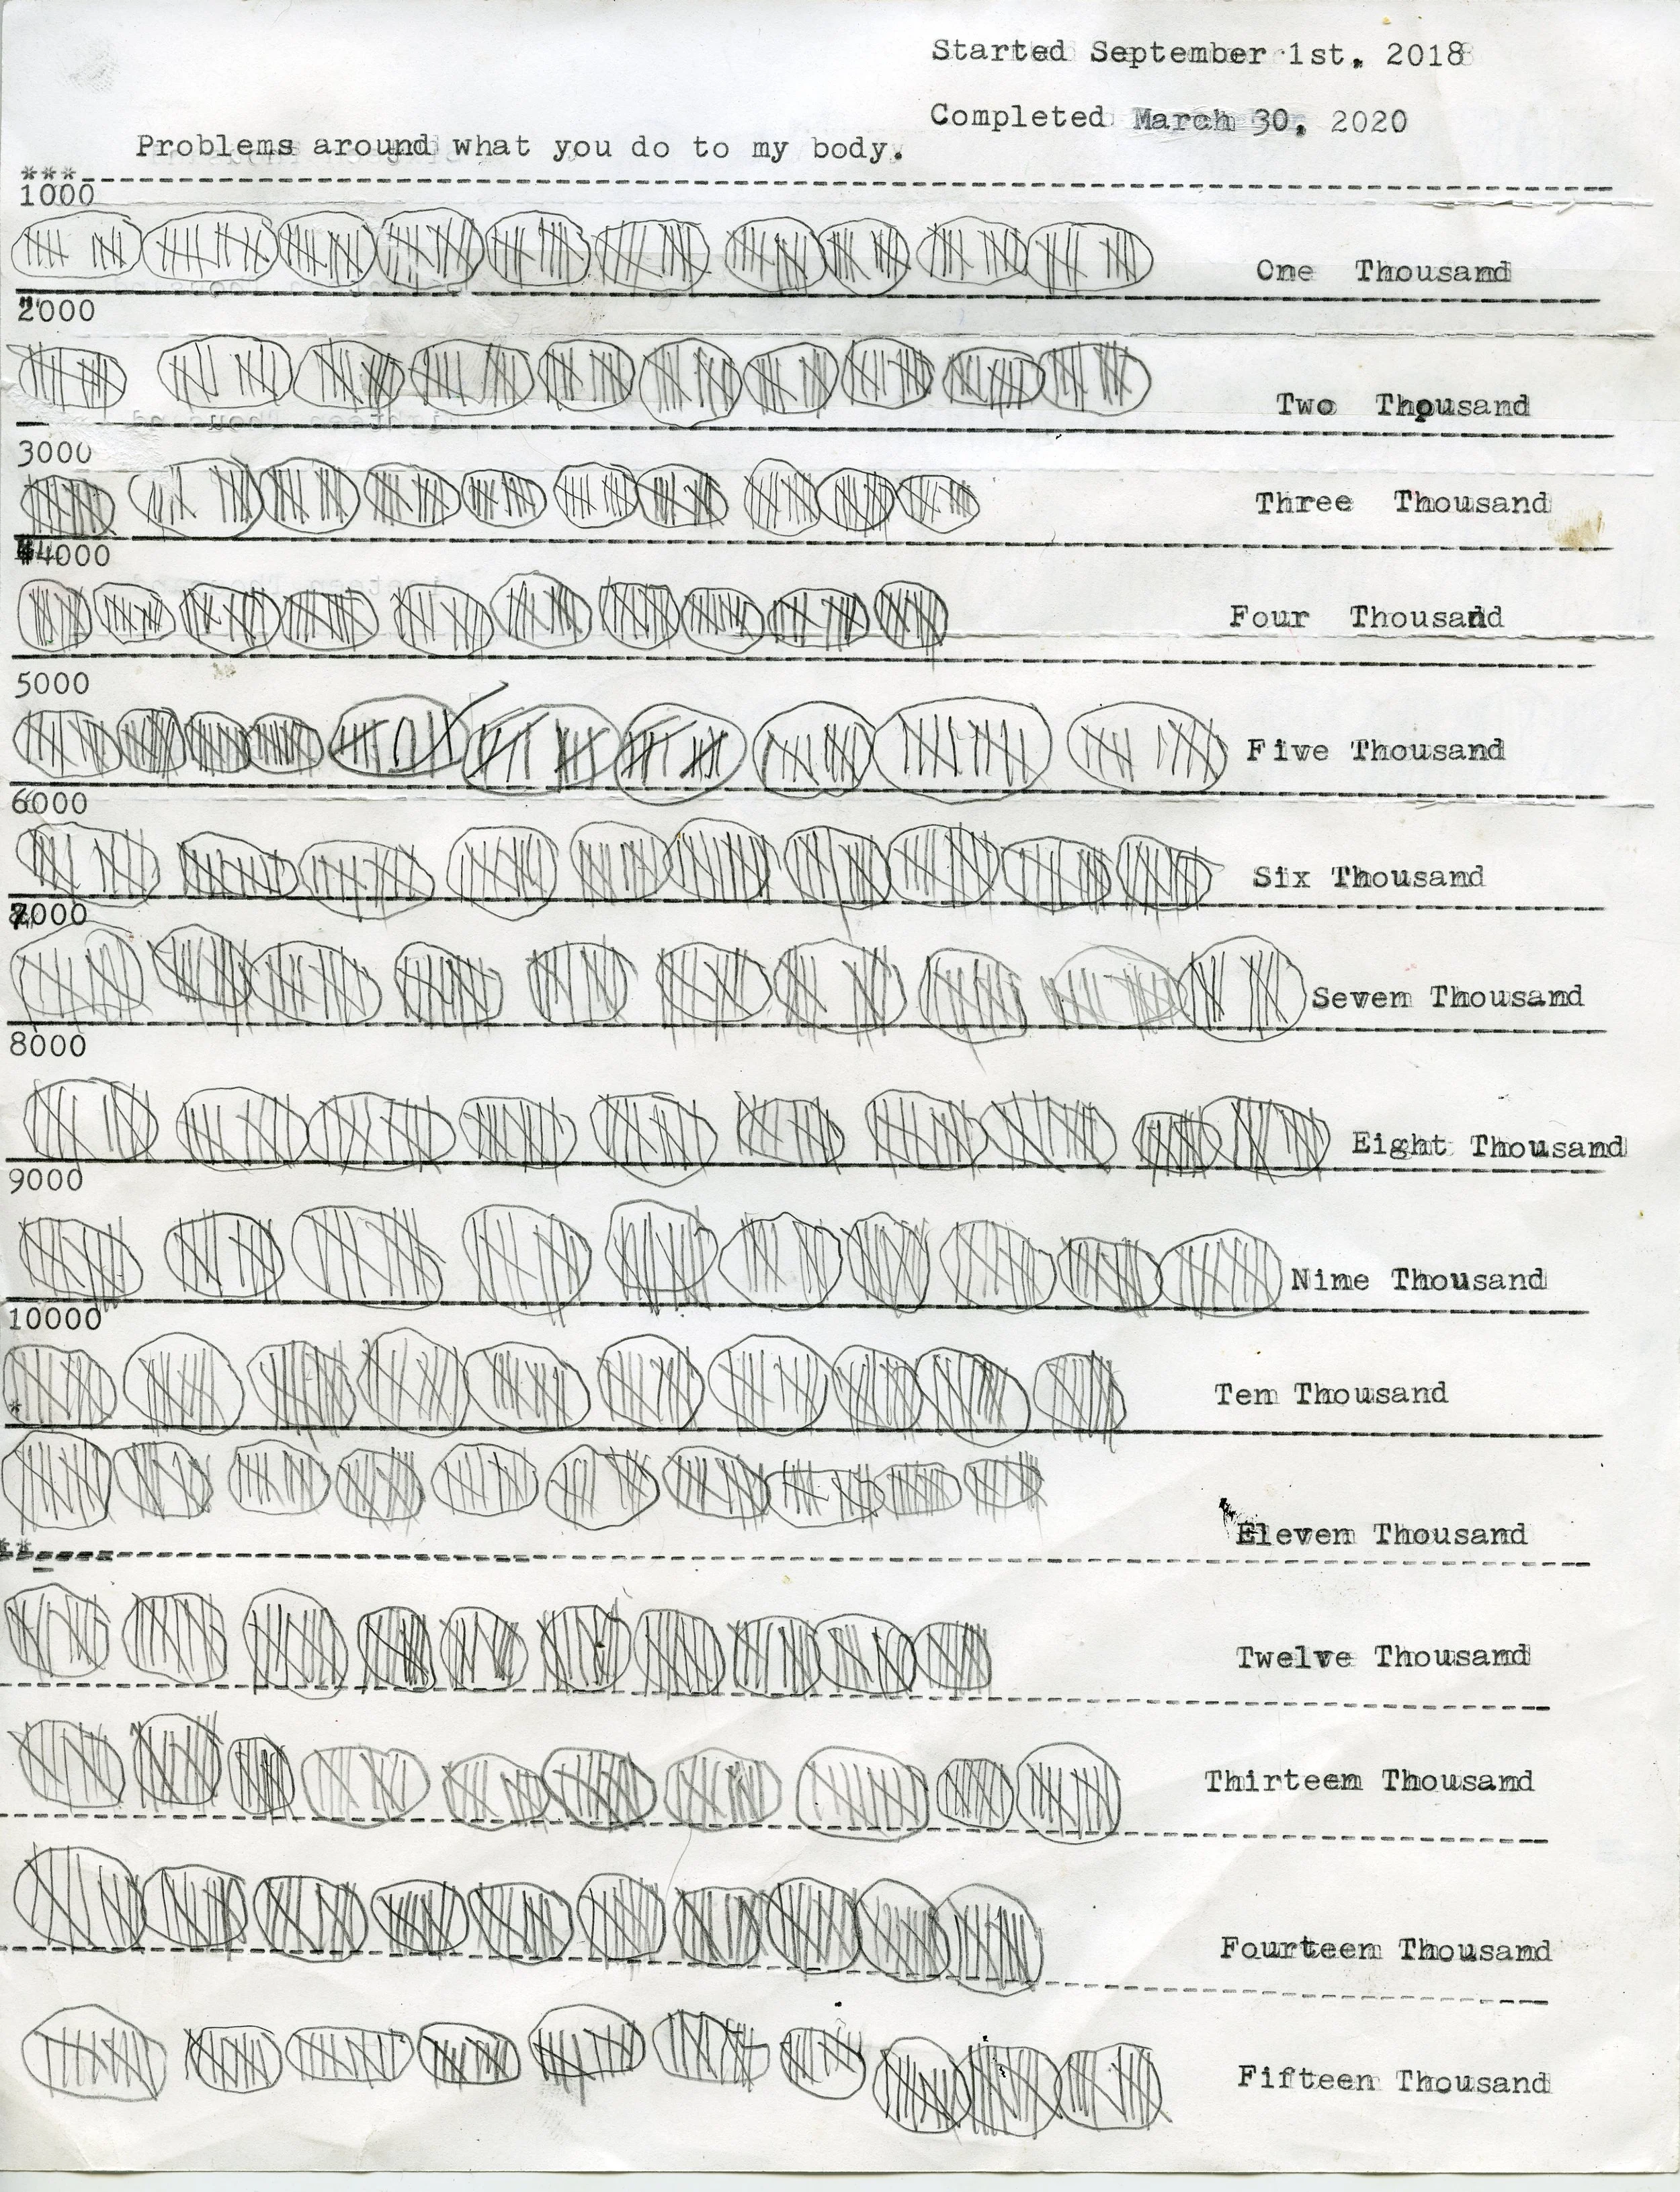 Started September 1st. 2018
Completed March 30, 2020
Problems around what you do to my body.
***
1000
One Thousand
2000
Two Thousand
3000
Three Thousand
4000
Four Thousand
5000
Five Thousand
6000
Six Thousand
7000
Seven Thousand
8000
Eight Thousand
9000
Nine Thousand
10000
Ten Thousand
*
Eleven Thousand
**
Twelve Thousand
Thirteen Thousand
Fourteen Thousand
Fifteen Thousand